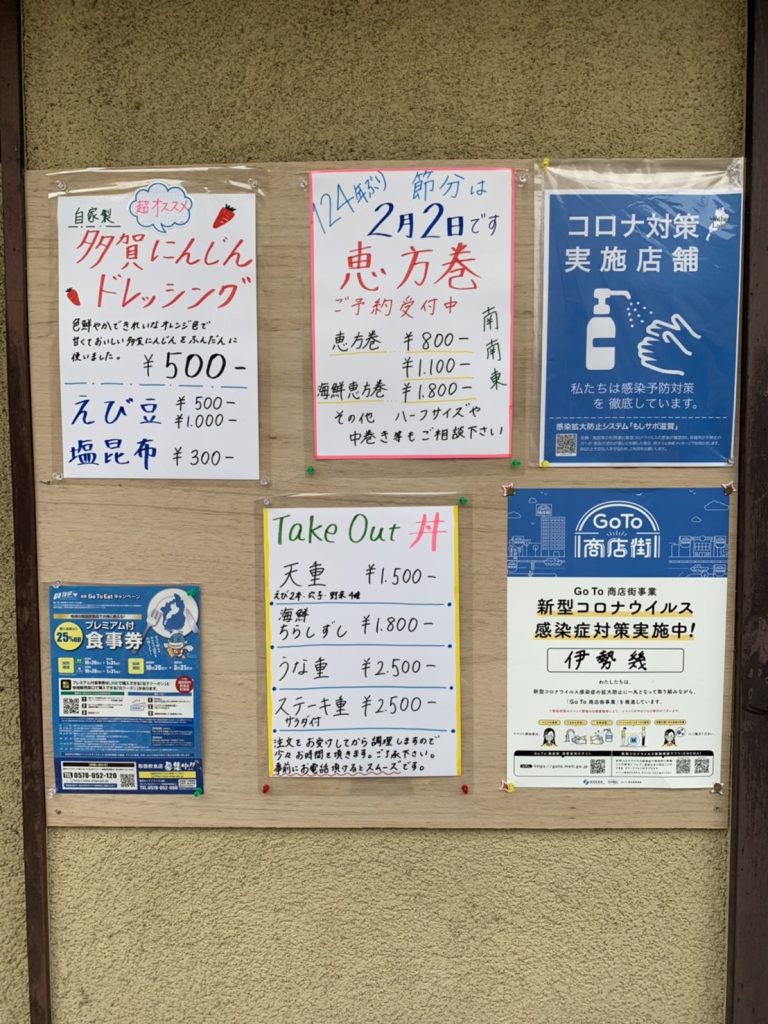 超オススメ
自家製
多賀にんじん
ドレッシング
色鮮やかできれいなオレンジ色で
甘くておいしい多賀にんじんをふんだんに
使いました。
¥500-
えび豆 ¥500-
¥1.000-
塩昆布 ¥300-
124年ぶり 節分は
2月2日です
恵方巻
ご予約受付中
南南東
恵方巻 ¥800-
¥1.100-
海鮮恵方巻 ¥1.800-
その他 ハーフサイズや
中巻き等もご相談下さい
コロナ対策
実施店舗
私たちは感染予防対策
を徹底しています。
感染拡大防止システム「もしサポ滋賀」
Go To Eat キャンペーン
プレミアム付
25%
食事券
TEL 0570-052-120
Take Out 丼
天重 ¥1.500-
えび2本・穴子・野菜4種
海鮮
ちらしずし ¥1.800-
うな重 ¥2.500-
ステーキ重 ¥2.500-
サラダ付
注文をお受けしてから調理しますので
少々お時間を頂きます。ご了承下さい。
事前にお電話頂けるとスムーズです。
GoTo
商店街
Go To 商店街事業
新型コロナウイルス
感染症対策実施中!
伊勢幾
わたしたちは、
新型コロナウイルス感染症の拡大防止に一丸となって取り組みながら、
「Go To 商店街事業」を推進しています。
https://goto.meti.go.jp